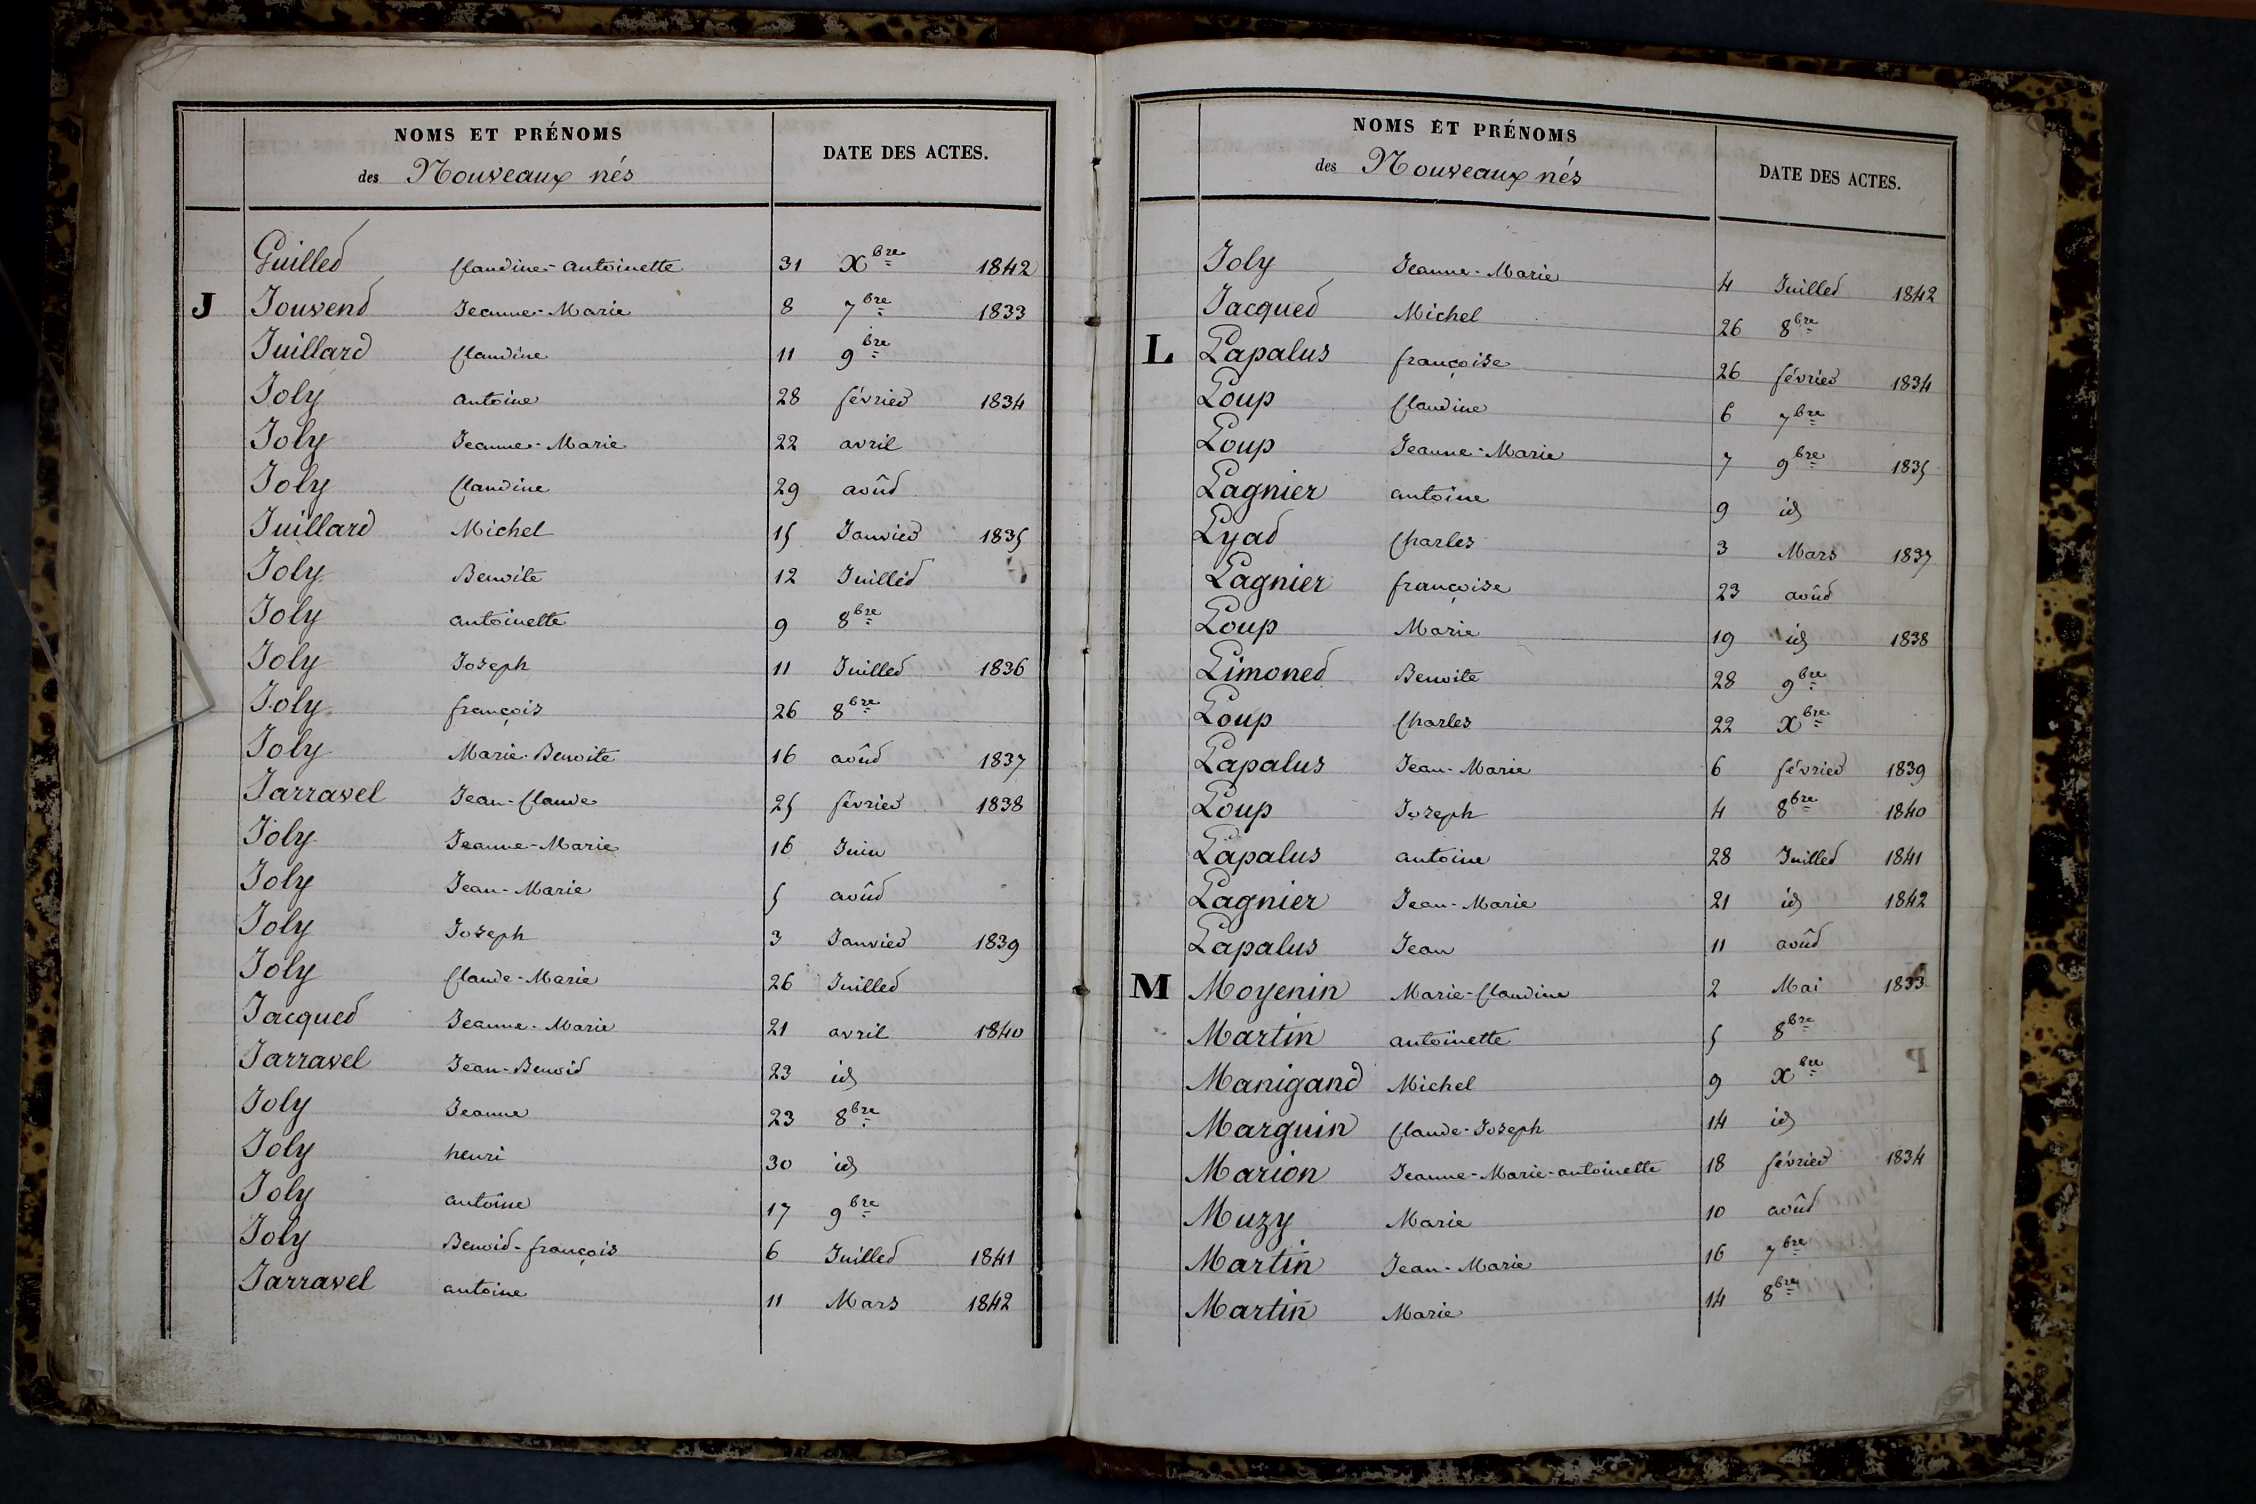 NOMS ET PRÉNOMS
des Nouveaux nés
DATE DES ACTES.
Guillet Claudine-Antoinette 31 Xbre 1842
J Jouvent Jeanne-Marie 8 7bre 1833
Juillard Claudine 11 9bre
Joly antoine 28 février 1834
Joly Jeanne-Marie 22 avril
Joly Claudine 29 août
Juillard Michel 15 Janvier 1835
Joly Benoite 12 Juillet
Joly antoinette 9 8bre
Joly Joseph 11 Juillet 1836
Joly françois 26 8bre
Joly Marie-Benoite 16 août 1837
Jarravel Jean-Claude 25 février 1838
Joly Jeanne-Marie 16 Juin
Joly Jean-Marie 5 août
Joly Joseph 3 Janvier 1839
Joly Claude-Marie 26 Juillet
Jacquet Jeanne-Marie 21 avril 1840
Jarravel Jean-Benoit 23 id
Joly Jeanne 23 8bre
Joly henri 30 id
Joly antoine 17 9bre
Joly Benoit-françois 6 Juillet 1841
Jarravel antoine 11 Mars 1842
NOMS ET PRÉNOMS
des Nouveaux nés
DATE DES ACTES.
Joly Jeanne-Marie 4 Juillet 1842
Jacquet Michel 26 8bre
L Lapalus françoise 26 février 1834
Loup Claudine 6 7bre
Loup Jeanne-Marie 7 9bre 1835
Lagnier antoine 9 id
Lyat Charles 3 Mars 1837
Lagnier françoise 23 août
Loup Marie 19 id 1838
Limonet Benoite 28 9bre
Loup Charles 22 Xbre
Lapalus Jean-Marie 6 février 1839
Loup Joseph 4 8bre 1840
Lapalus antoine 28 Juillet 1841
Lagnier Jean-Marie 21 id 1842
Lapalus Jean 11 août
M Moyenin Marie-Claudine 2 Mai 1833
Martin antoinette 5 8bre
Manigand Michel 9 Xbre
Marguin Claude-Joseph 14 id
Marion Jeanne-Marie-antoinette 18 février 1834
Muzy Marie 10 août
Martin Jean-Marie 16 7bre
Martin Marie 14 8bre